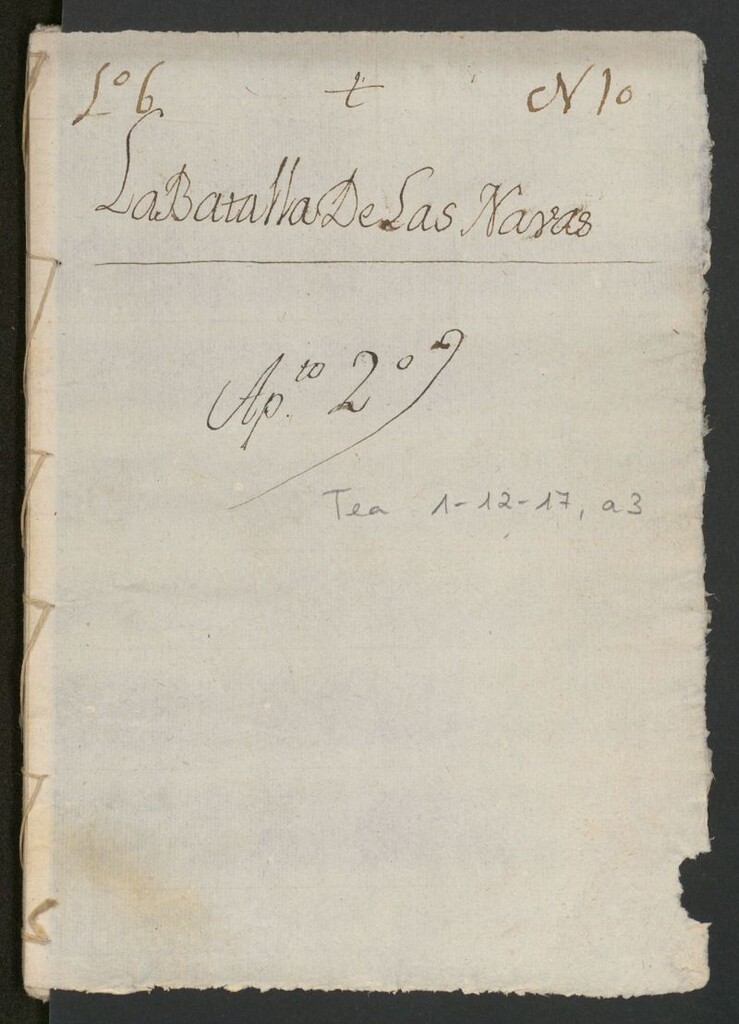 Lº 6 + N 10
La Batalla De Las Navas
Ap.to 2º
Tea 1-12-17, a3